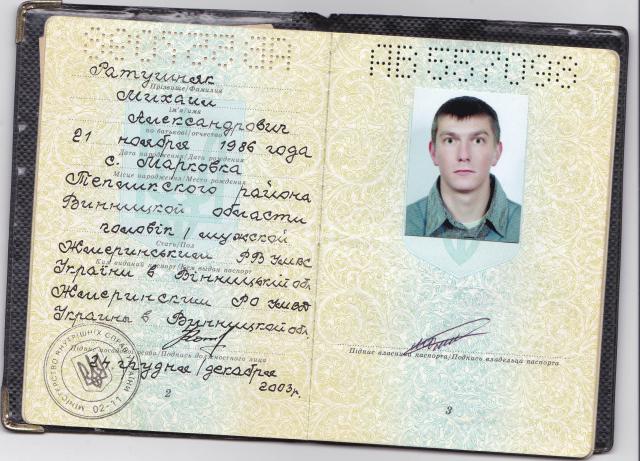 АВ 557098
Ратушняк
Прізвище/Фамилия
Михаил
ім'я/имя
Александрович
по батькові/отчество
21 ноября 1986 года
Дата народження/Дата рождения
с. Марковка
Місце народження/Место рождения
Тепликского района
Винницкой области
чоловіч / мужской
Стать/Пол
Жмеринським РВ УМВС
Ким виданий паспорт/Кем выдан паспорт
України в Вінницькій обл
Жмеринским РО УМВД
Украины в Винницкой обл
Підпис посадової особи/Подпись должностного лица
24 грудня / декабря
2003г.
МІНІСТЕРСТВО ВНУТРІШНІХ СПРАВ УКРАЇНИ
02-11
2
АВ 557098
Підпис власника паспорта/Подпись владельца паспорта
3